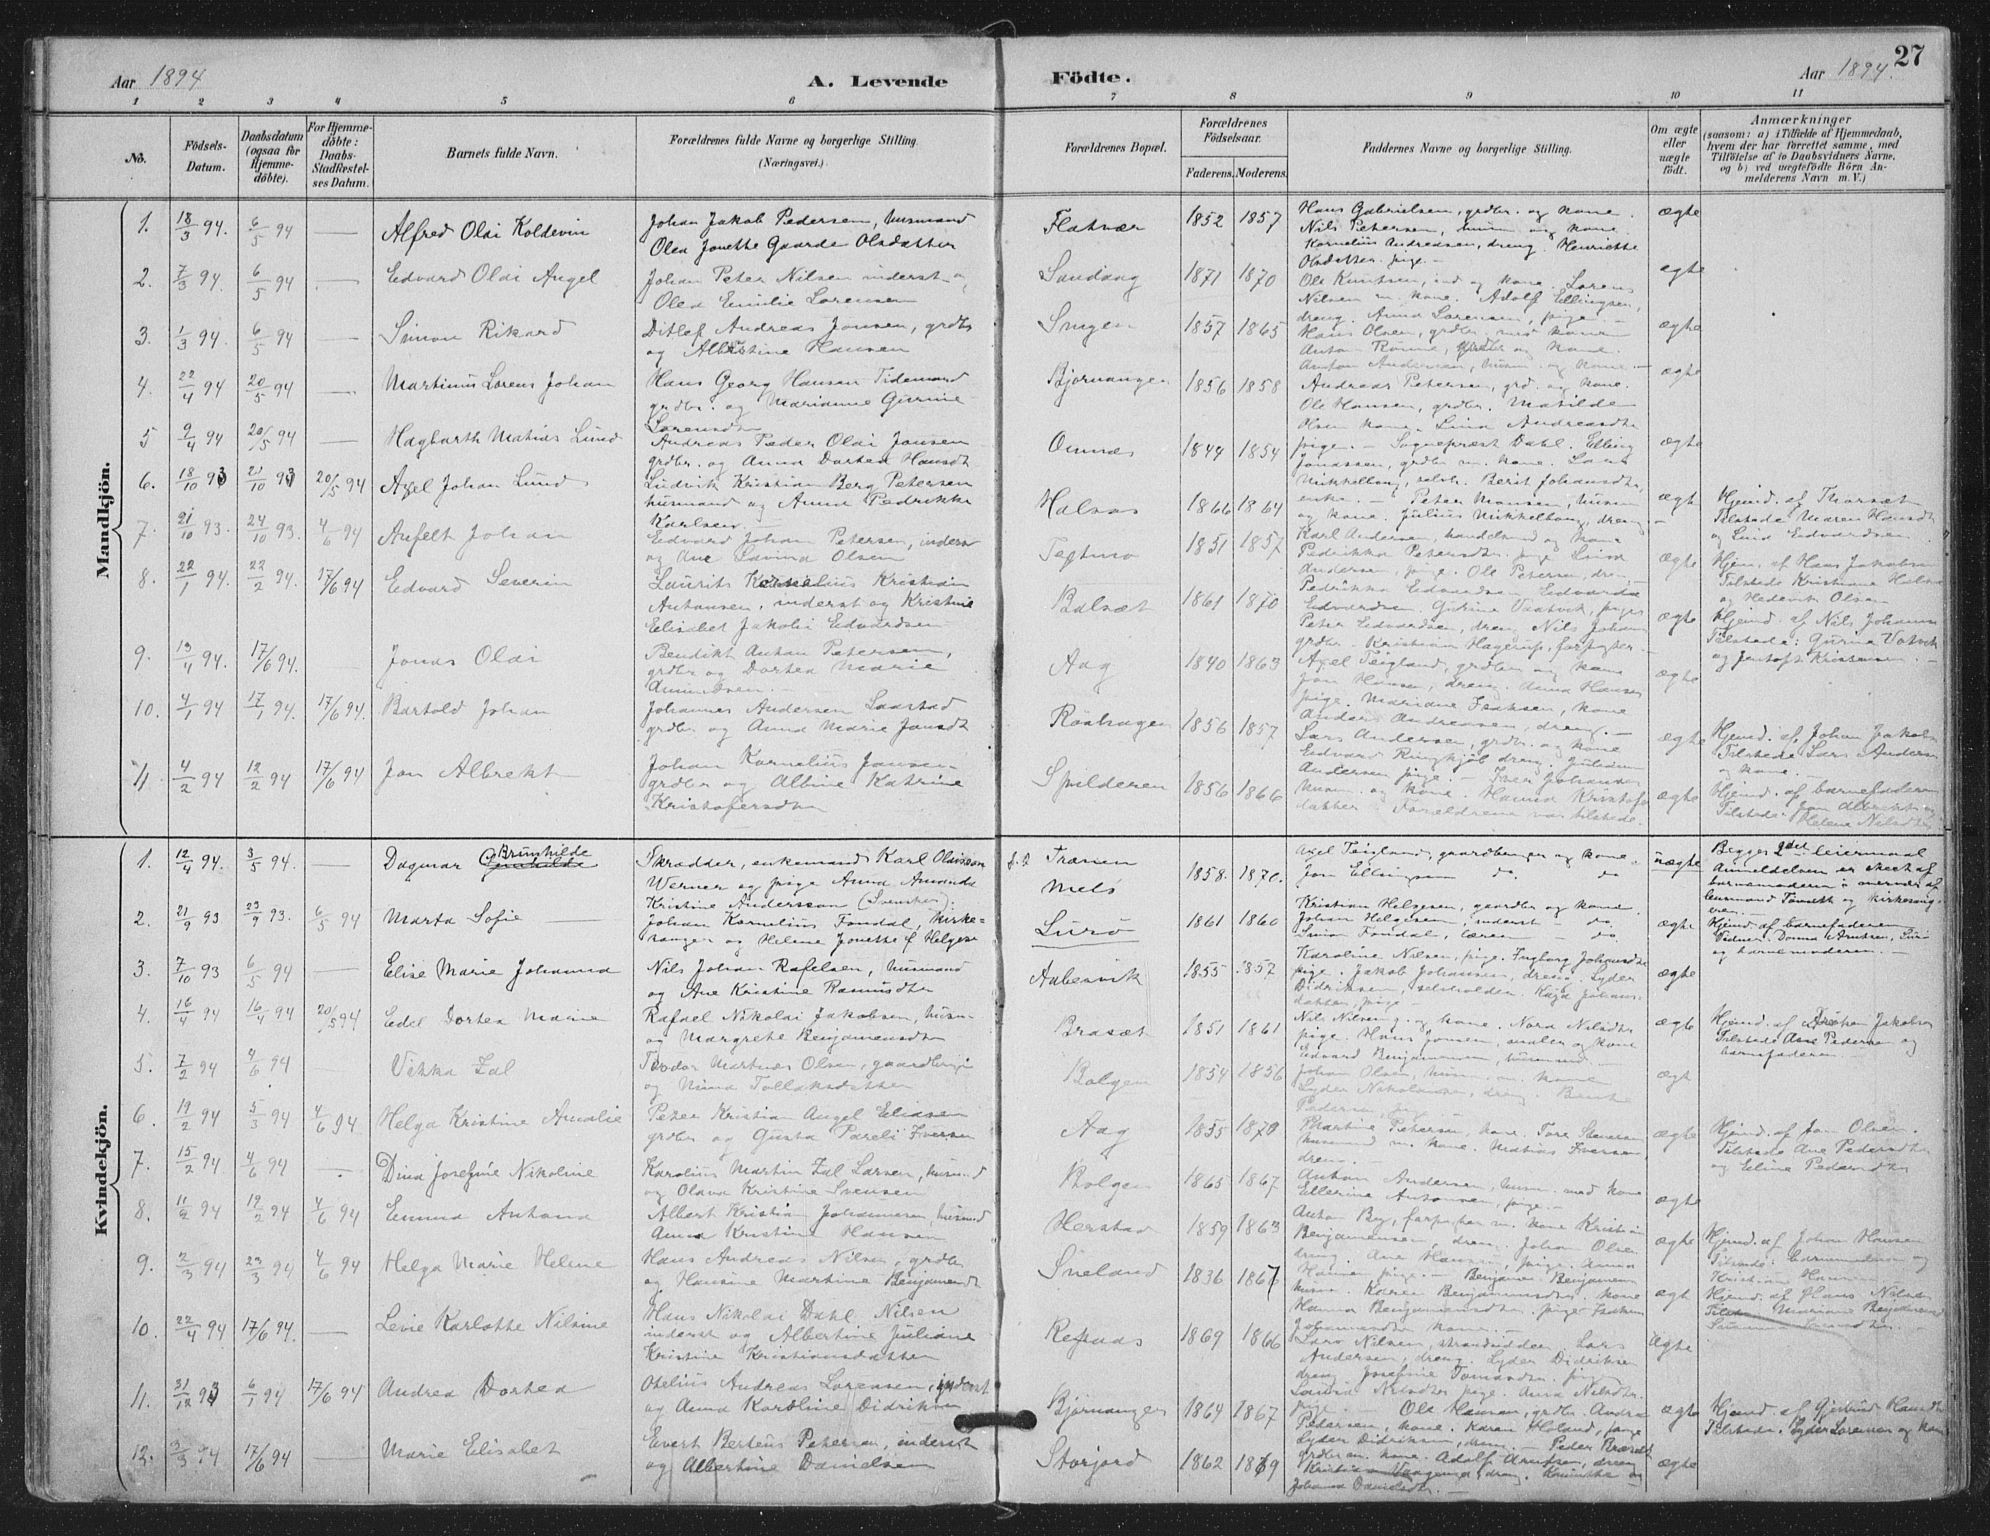 Aar 1894
A. Levende
Födte.
Aar 1894.
27
1 2 3 4 5 6 7 8 9 10 11
No.
Födsels-
Datum.
Daabsdatum
(ogsaa for
Hjemme-
döbte).
For Hjemme-
döbte:
Daabs-
Stadfæstel-
ses Datum.
Barnets fulde Navn.
Forældrenes fulde Navne og borgerlige Stilling.
(Næringsvei.)
Forældrenes Bopæl.
Forældrenes
Födselsaar.
Faderens. Moderens.
Faddernes Navne og borgerlige Stilling.
Om ægte
eller
uægte
födt.
Anmærkninger
(saasom: a) i Tilfælde af Hjemmedaab,
hvem der har forrettet samme, med
Tilföielse af to Daabsvidners Navne,
og b) ved uægtefödte Börn An-
melderens Navn m. V.)
Mandkjön.
1. 18/3 94. 6/5 94 — Alfred Olai Koldevin
Johan Jakob Pedersen, husmand
Olea Jonette Gaarde Olsdatter
Flatvær 1852 1857
Hans Gabrielsen, grdbr. og kone.
Nils Petersen, husm og kone.
Kornelius Andreasen, dreng. Henriette
Olsdatter pige. —
ægte
2. 7/3 94. 6/5 94 — Edvard Olai Angel
Johan Peter Nilsen inderst og
Olea Emilie Lorensen
Sandaag 1871 1870
Ole Knutsen, ind og kone. Lorens
Nilsen m. kone. Adolf Ellingsen,
dreng. Anna Lorensen, pige. —
ægte
3. 1/3 94. 6/5 94 — Simon Rikard
Ditlef Andreas Jonsen, grdbr
og Albertine Hansen
1857 1865
Hans Olsen, grdbr. med kone
Anton Rönne, grdbr og kone.
Anton Andersen, husm og kone. —
ægte
4. 22/4 94 20/5 94 — Martinus Lorens Johan
Hans Georg Hansen Tidemand
grdbr. og Marianne Gurine
Lorensdtr
Björnangen 1856 1858
Andreas Petersen, grd. og kone.
Ole Hansen, grdbr. Matilde
Olsen kone. Lina Andreasdtr
pige. —
ægte
5 9/4 94 20/5 94 — Hagbarth Matias Lund
Andreas Peder Olai Jonsen
grdbr. og Anna Dortea Hansdt
Onnes 1844 1854
Sogneprest Dahl. Elling
Jonassen, grdbr m. kone.
Mikkelborg, Berit Johansdtr
enke. —
ægte
6. 18/10 93 21/10 93 20/5 94 Axel Johan Lund
Ludvik Kristian Berg Petersen
husmand og Anna Pedrikke
Karlsen. —
Halsos 1866 1864
Peter Monsen, husm
og kone. Julius Mikkelborg, dreng
ægte
Hjemd. af Thorsæt
Tilstede Maren Hansdt
og Lina Edvardsen.
7. 21/10 93. 24/10 93. 4/6 94 Anfelt Johan
Edvard Johan Petersen, inderst
og Ane Lovina Olsen
Tegtmo 1851 1857
Karl Andersen, handelsmd og kone
Pedrikka Petersdtr. pige Lina
Andersen, pige. Ole Petersen, dreng.
ægte
Hjem. af Hans Jakobsen
Tilstede Kristiane Halsos
og Hedevik Olsen
8. 22/1 94. 22/2 94. 17/6 94 Edvard Severin
Laurits Kornelius Kristian
Antonsen, inderst og Kristine
Elisabet Jakobi Edvardsen
Balsæt 1861 1870
Pedrikka Edvardsen Edvarda
Edvardsen. Gurine Vaatvik, piger
Peter Edvardsen, dreng Nils Johans
grdbr. Kristian Hagerup, forpagter.
ægte
Hjemd. af Nils Johansen
Tilstede: Gurina Vatvik
og Jentoft Kristensen. —
9. 13/4 94. 17/6 94. — Jonas Olai
Bendikt Antan Petersen,
grdbr og Dortea Marie
Amundsen. —
Aag 1840 1863
Axel Teigland, grdbr og kone
Jon Hansen, dreng. Anna Hansen
pige. Mariane Isaksen, kone
Anders Andreasen, dreng. —
ægte
10. 4/1 94 17/1 94. 17/6 94. Bartold Johan
Johannes Andersen Saastad
grdbr og Anna Marie Jansdt
Röshagen 1856 1857
Lars Andersen, grdbr. og kone
Edvard Ringkjöb dreng. Juliane
Andersen pige. —
ægte
Hjemd. af Johan Jakobs
Tilstede Lars Andersen
og kone. —
11 4/2 94 12/2 94 17/6 94 Jon Albrekt
Johan Kornelius Jansen
grdbr og Albine Katrine
Kristofersdtr
Spilderen 1856 1866
Iver Johansen
husm. og kone. Hanna Kristofers
datter. Forældrene var tilstede.
ægte
Hjemd. af barnefaderen
Tilstede Jon Albriktsen og
Helene Nilsdtr
Kvindekjön.
1. 12/4 94. 3/5 94. — Dagmar Brunhilde
Skrædder, enkemand Karl Olaisson
Werner og pige Anna Amanda
Kristine Andersson (Svensker).
Trænen
Melö
1858. 1870.
Axel Teigland, gaardbruger og kone.
Jon Ellingsen do. do
uægte
Begges 2det leiermaal
Anmeldelsen er skeet af
barnemoderen i nærvær af
lensmand Tönseth og kirkesanger
2. 21/9 93 23/9 93. 6/5 94 Marta Sofie
Johan Kornelius Fondal, kirke-
sanger og Helene Jonette f Helgese
Lurö 1861 1860
Kristian Helgesen, gaardbr og kone
Johan Helgesen, inderst — do
Simon Fondal, lærer — do
ægte
Hjemd. af barnefaderen
Vidner: Donna Arntsen, Lurö
og barnemoderen. —
3. 7/10 93 6/5 94 — Elise Marie Johanna
Nils Johan Rafelsen, husmand
og Ane Kristine Rasmusdtr
Aabesvik 1855 1857
Karoline Nilsen, pige. Ingborg Johansdtr
pige. Jakob Johansen, dreng. Lyder
Didriksen, selvholder. Kaja Johans-
datter, pige —
ægte
4. 16/4 94 16/4 94 20/5 94 Edel Dortea Marie
Rafael Nikolai Jakobsen, husm
og Margrete Benjaminsdtr
Brasæt 1851 1861
Nils Nilsen og kone. Nora Nilsdtr
pige. Hans Jonsen, maler og kone
Edvard Benjaminsen, husmand. —
ægte
Hjemd. af Johan Jakobsen
Tilstede Ane Pedersen og
barnefaderen
5. 7/2 94 4/6 94 — Vikka Zal
Teodor Martinus Olsen, gaardbruger
og Nina Tollaksdatter
Bolgen 1854 1856
Johan Olsen, husm. m. kone
Lyder Nikolaisen, dreng. Bente
Pedersen, pige —
ægt
6. 19/2 94 5/3 94 4/6 94 Helga Kristine Amalie
Peter Kristian Angel Eliasen
grdbr og Gusta Pareli Iversen
Aag 1855 1870
Martine Petersen, kone. Tore Stensen
husmand m. kone. Matias Iversen
dreng. —
ægte
Hjemd. af Jon Olsen.
Tilstede Ane Pedersdtr
og Eline Pedersdtr
7. 15/2 94. 4/6 94 — Dina Josefine Nikoline
Karolius Martin Zal Larsen, husmd
og Olava Kristine Svensen
Bolgen 1865 1867
Anton Andersen, husm. med kone
Ellerine Antonsen, pige. —
ægte
8. 11/2 94 19/2 94 4/6 94 Emma Antona
Albert Kristian Johannesen, husmd
Anna Kristine Hansen
Hærstad 1859 1863
Anton By, forpagter m. kone Kristian
Benjaminsen, dreng. Johan Olsen
dreng. Ane Hansen, pige. Anna
Hansen pige. —
ægte
Hjemd. af Johan Hansen
Tilstede: barnemoderen og
Kristiane Hansen
9. 2/3 94 23/3 94 4/6 94 Helga Marie Helene
Hans Andreas Nilsen, grdbr
og Hansine Martine Benjamindt
Sneland 1836 1867
Benjamin Benjaminsen
husm. Karen Benjaminsdtr. kone
Hanna Benjaminsdtr. pige Isaksen
Johannesdtr kone. —
ægt
Hjemd. af Hans Nilsen
Tilstede Mariane Benjaminsd
10. 22/4 94 17/6 94. — Levie Karlotte Nilsine
Hans Nikolai Dahl Nilsen
inderst og Albertine Juliane
Kristine Kristiansdatter
Refsnes 1869 1866
Lars Nilsen, strandsidder Lars
Andersen, dreng. Lyder Didriksen
dreng. Josefine Tomasdtr. pige
Lovisa Nilsdtr pige. Anna Nilsdtr.
pige. —
ægte
11. 31/12 93 6/1 94 17/6 94 Andrea Dortea
Otelius Andreas Lorensen, inderst
og Anna Karoline Didriksen
Björnangen 1864 1867
Ole Hansen, grdbr. Andrea
Pedersen, kone. Karen Holand, pige
Lyder Didriksen, dreng. —
ægte
Hjemd. af Gjertrud Hansdtr
Tilstede: Lyder Lorensen og kone
12. 3/3 94 17/6 94 — Marie Elisabet
Evert Berteus Petersen, inderst
og Albertine Danielsen
Storjord 1862 1869
Peder Bræsæt
grdbr m. kone. Adolf Arntsen, dreng
dreng.
Johanna Danielsdtr. —
ægte